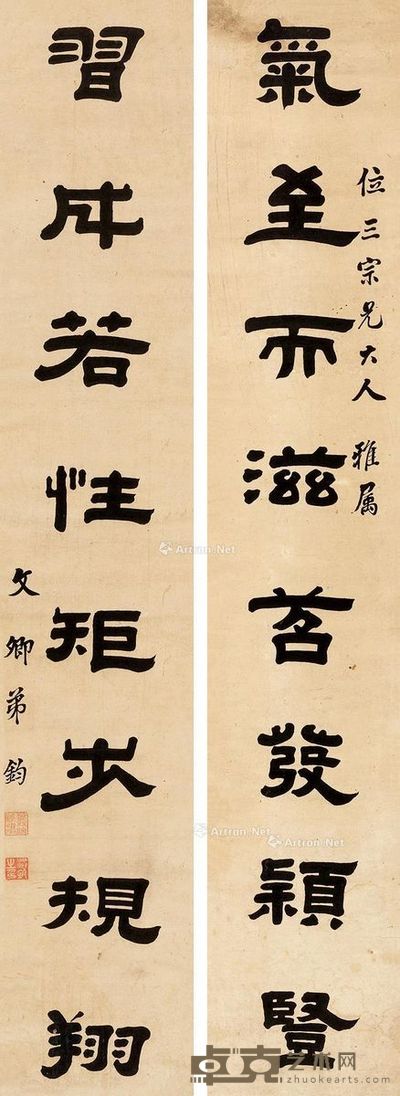 位三宗兄大人 雅属
氣至而滋苕發穎豎
習成若性矩步規翔
文卿弟鈞
Artron.Net
Artron.Net
卓克艺术网
zhuokearts.com